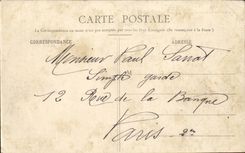 CARTE POSTALE
La Correspondance au recto n'est pas acceptée par tous les Pays Étrangers (Se renseigner à la Poste)
CORRESPONDANCE ADRESSE
Monsieur Paul
Simple garde
12 Rue de la Banque
Paris 2me